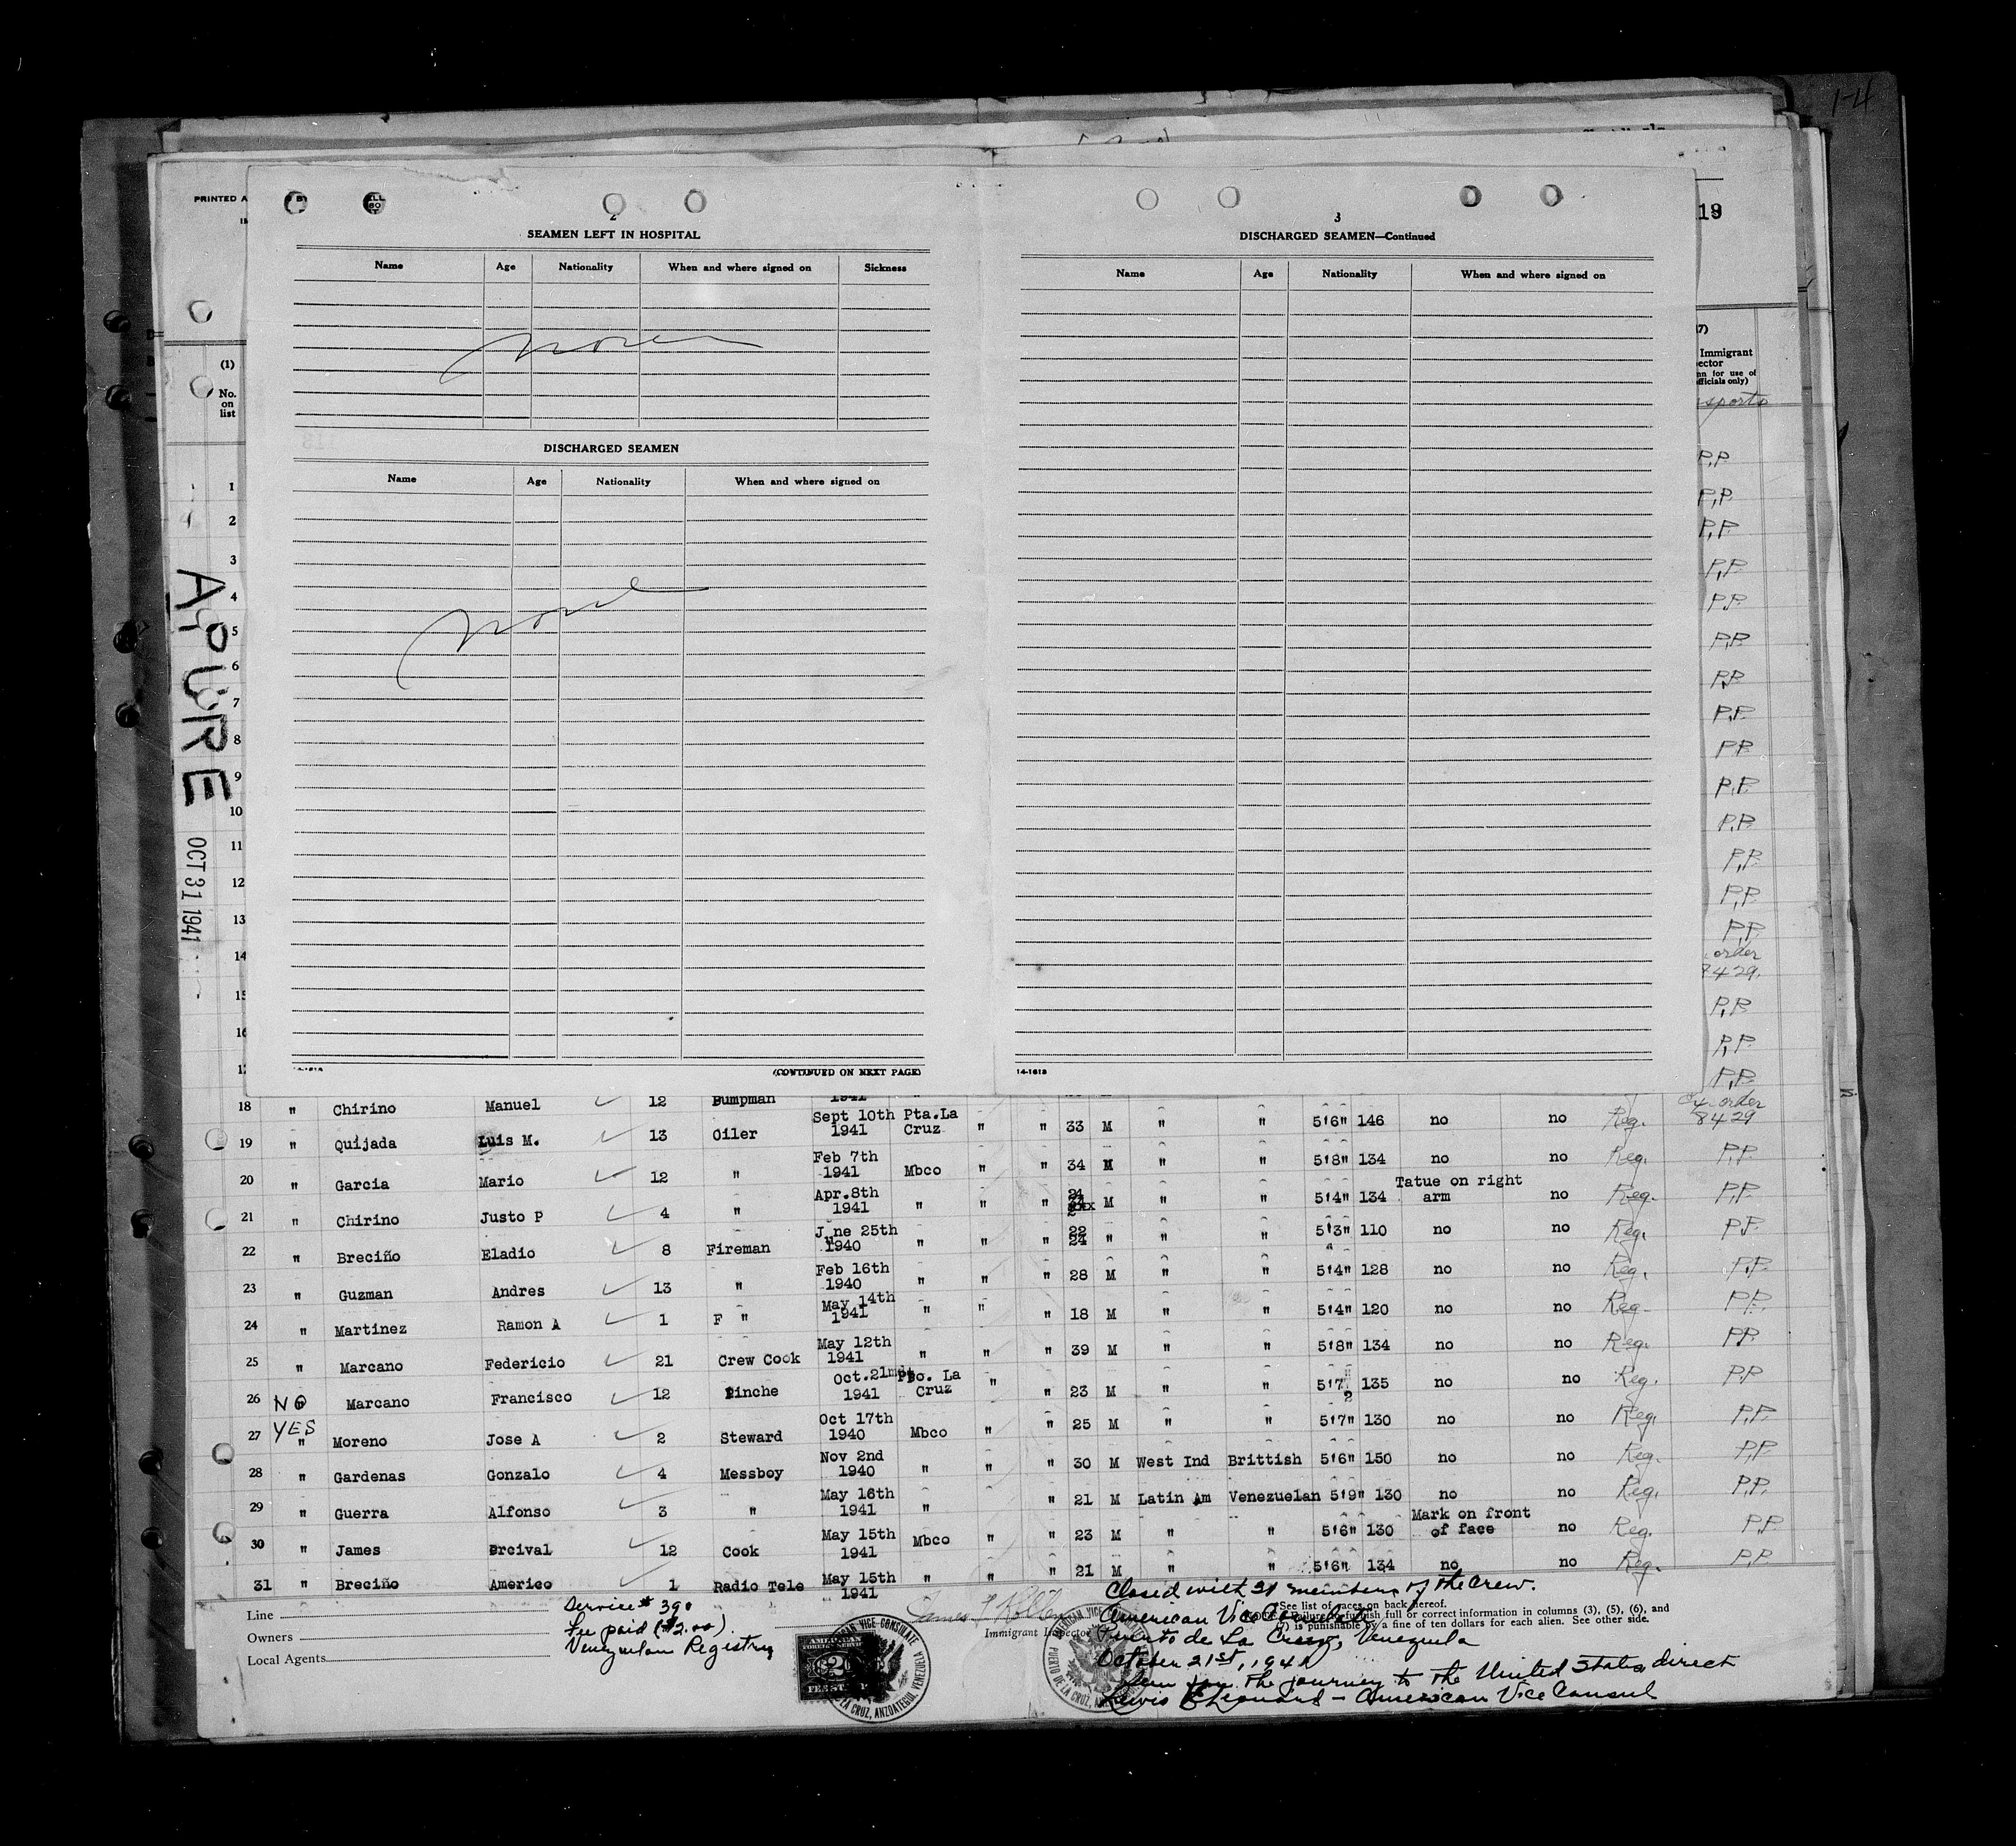 1-4
PRINTED A
19
2
SEAMEN LEFT IN HOSPITAL
Name Age Nationality When and where signed on Sickness
None
DISCHARGED SEAMEN
Name Age Nationality When and where signed on
None
(CONTINUED ON NEXT PAGE)
3
DISCHARGED SEAMEN—Continued
Name Age Nationality When and where signed on
14-1618
(1)
No.
on
list
Immigrant
ector
officials only)
APURE
OCT 31 1941
1 P.P.
2 P.P.
3 P.P.
4 P.P.
5 P.P.
6 P.P.
7 P.P.
8 P.P.
9 P.P.
10 P.P.
11 P.P.
12 P.P.
13 P.P.
14 P.P.
order
8429.
15 P.P.
16 P.P.
P.P.
18 " Chirino Manuel 12 Pumpman 1941
Sept 10th Pta.La Ex order
19 " Quijada Luis M. 13 Oiler 1941 Cruz " " 33 M " " 5'6" 146 no no Reg. 8429
Feb 7th
20 " Garcia Mario 12 " 1941 Mbco " " 34 M " " 5'8" 134 no no Reg. P.P.
Apr.8th Tatue on right
21 " Chirino Justo P 4 " 1941 " " " M " " 5'4" 134 arm no Reg. P.P.
June 25th
22 " Breciño Eladio 8 Fireman 1940 " " " 22 24 " " " 5'3" 110 no no Reg. P.P.
Feb 16th
23 " Guzman Andres 13 " 1940 " " " 28 M " " 5'4" 128 no no Reg. P.P.
May 14th
24 " Martinez Ramon A 1 F " 1941 " " " 18 M " " 5'4" 120 no no Reg. P.P.
May 12th
25 " Marcano Federicio 21 Crew Cook 1941 " " " 39 M " " 5'8" 134 no no Reg. P.P.
Oct.21 Pto. La
26 NO Marcano Francisco 12 Pinche 1941 Cruz " " 23 M " " 5'7 135 no no Reg. P.P.
YES Oct 17th
27 " Moreno Jose A 2 Steward 1940 Mbco " " 25 M " " 5'7" 130 no no Reg. P.P.
Nov 2nd
28 " Gardenas Gonzalo 4 Messboy 1940 " " " 30 M West Ind Brittish 5'6" 150 no no Reg. P.P.
May 16th
29 " Guerra Alfonso 3 " 1941 " " 21 M Latin Am Venezuelan 5'9" 130 no no Reg. P.P.
May 15th Mark on front
30 " James Prcival 12 Cook 1941 Mbco " " 23 M " " 5'6" 130 of face no Reg. P.P.
31 " Breciño Americo 1 Radio Tele May 15th " " " 21 M " " 5'6" 134 no no Reg. P.P.
1941
Line
Owners
Local Agents
Service # 390
Fee paid ($2.00).
Venezuelan Registry
Immigrant Inspector
Closed with 31 members of the Crew.
American Vice Consulate
Puerto de La Cruz, Venezuela
October 21st, 1941
Seen for the journey to the United States direct
Lewis E Leonard - American Vice Consul
See list of races on back hereof.
Failure to furnish full or correct information in columns (3), (5), (6), and
(7) is punishable by a fine of ten dollars for each alien. See other side.
AMERICAN VICE CONSULATE
PUERTO DE LA CRUZ, ANZOATEGUI, VENEZUELA